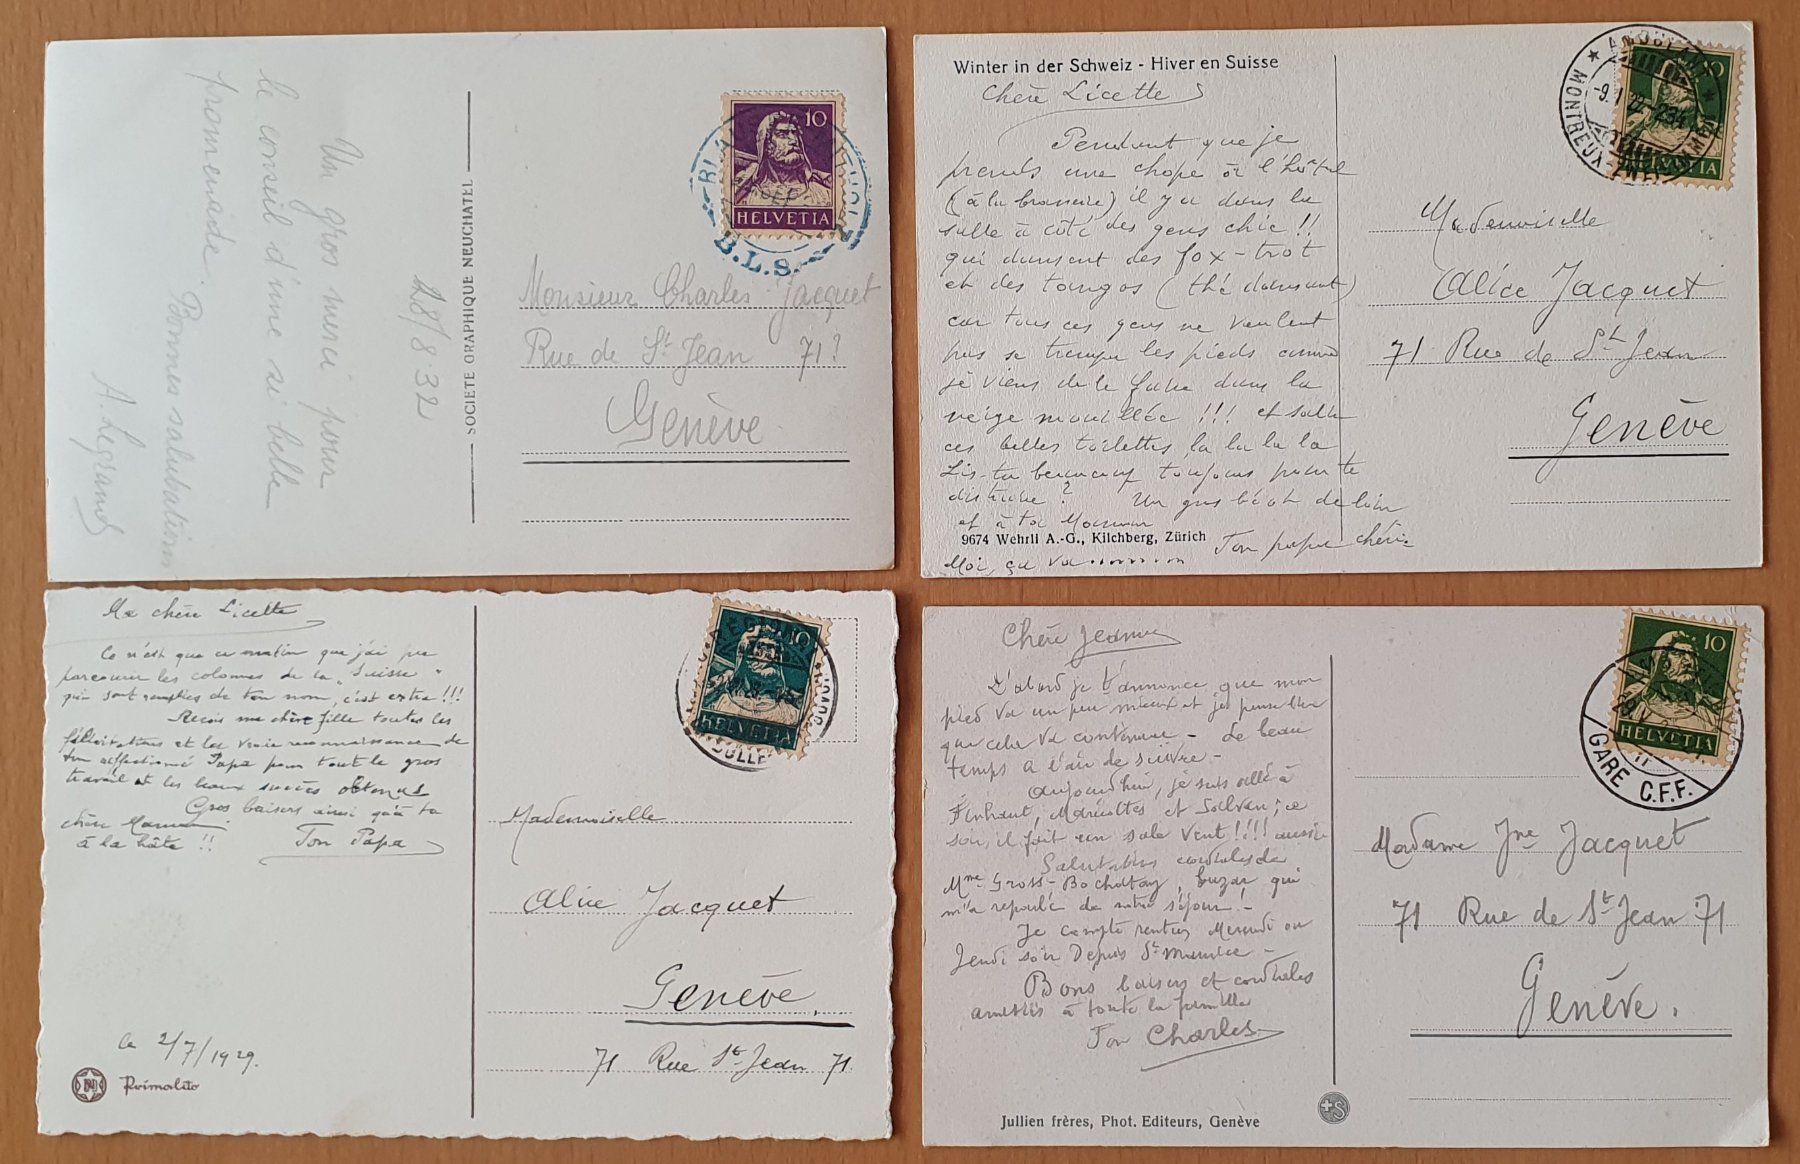 Un gros merci pour
le conseil d'une si belle
promenade.
Bonnes salutations
A. Legrand
28/8.32
SOCIETE GRAPHIQUE NEUCHATEL
10
HELVETIA
B.L.S.
Monsieur Charles Jacquet
Rue de St Jean 71?
Genève
Winter in der Schweiz - Hiver en Suisse
Chère Licette
Pendant que je
prends une chope à l'hôtel
(à la brasserie) il y a dans la
salle à côté des gens chic!!
qui dansent des fox-trot
et des tangos (thé dansant)
car tous ces gens ne veulent
pas se tremper les pieds comme
je viens de le faire dans la
neige mouillée!!! et salir
ces belles toilettes la la la la
Lis-tu beaucoup toujours pour te
distraire? Un gros bécot de loin
et à toi Maman
9674 Wehrli A.-G., Kilchberg, Zürich
Ton papa chéri.
Moi, ça va
AMBULANT
MONTREUX-ZWEISIMMEN
10
HELVETIA
Mademoiselle
Alice Jacquet
71 Rue de St Jean
Genève
Ma chère Licette
Ce n'est que ce matin que j'ai pu
parcourir les colonnes de la "Suisse"
qui sont remplies de ton nom, c'est extra!!!
Reçois ma chère fille toutes les
félicitations et la vraie reconnaissance de
ton affectionné Papa pour tout le gros
travail et les beaux succès obtenus
Gros baisers ainsi qu'à ta
chère Maman.
à la hâte!! Ton Papa
le 2/7/1929.
Primalito
10
HELVETIA
BULLE
Mademoiselle
Alice Jacquet
Genève.
71 Rue St Jean 71
Chère Jeanne
D'abord je t'annonce que mon
pied va un peu mieux et je pense bien
que cela va continuer - Le beau
temps a l'air de suivre -
Aujourd'hui, je suis allé à
Finhaut, Marécottes et Salvan; ce
soir, il fait un sale vent!!!! aussi
Salutations cordiales de
Mme Gross-Bochatay, bazar qui
m'a reparlé de notre séjour! -
Je compte rentrer Mercredi ou
Jeudi soir Depuis St Maurice -
Bons baisers et cordiales
amitiés à toute la famille
Ton Charles
Jullien frères, Phot. Editeurs, Genève
S
10
HELVETIA
GARE C.F.F.
Madame Jne Jacquet
71 Rue de St Jean 71
Genève.